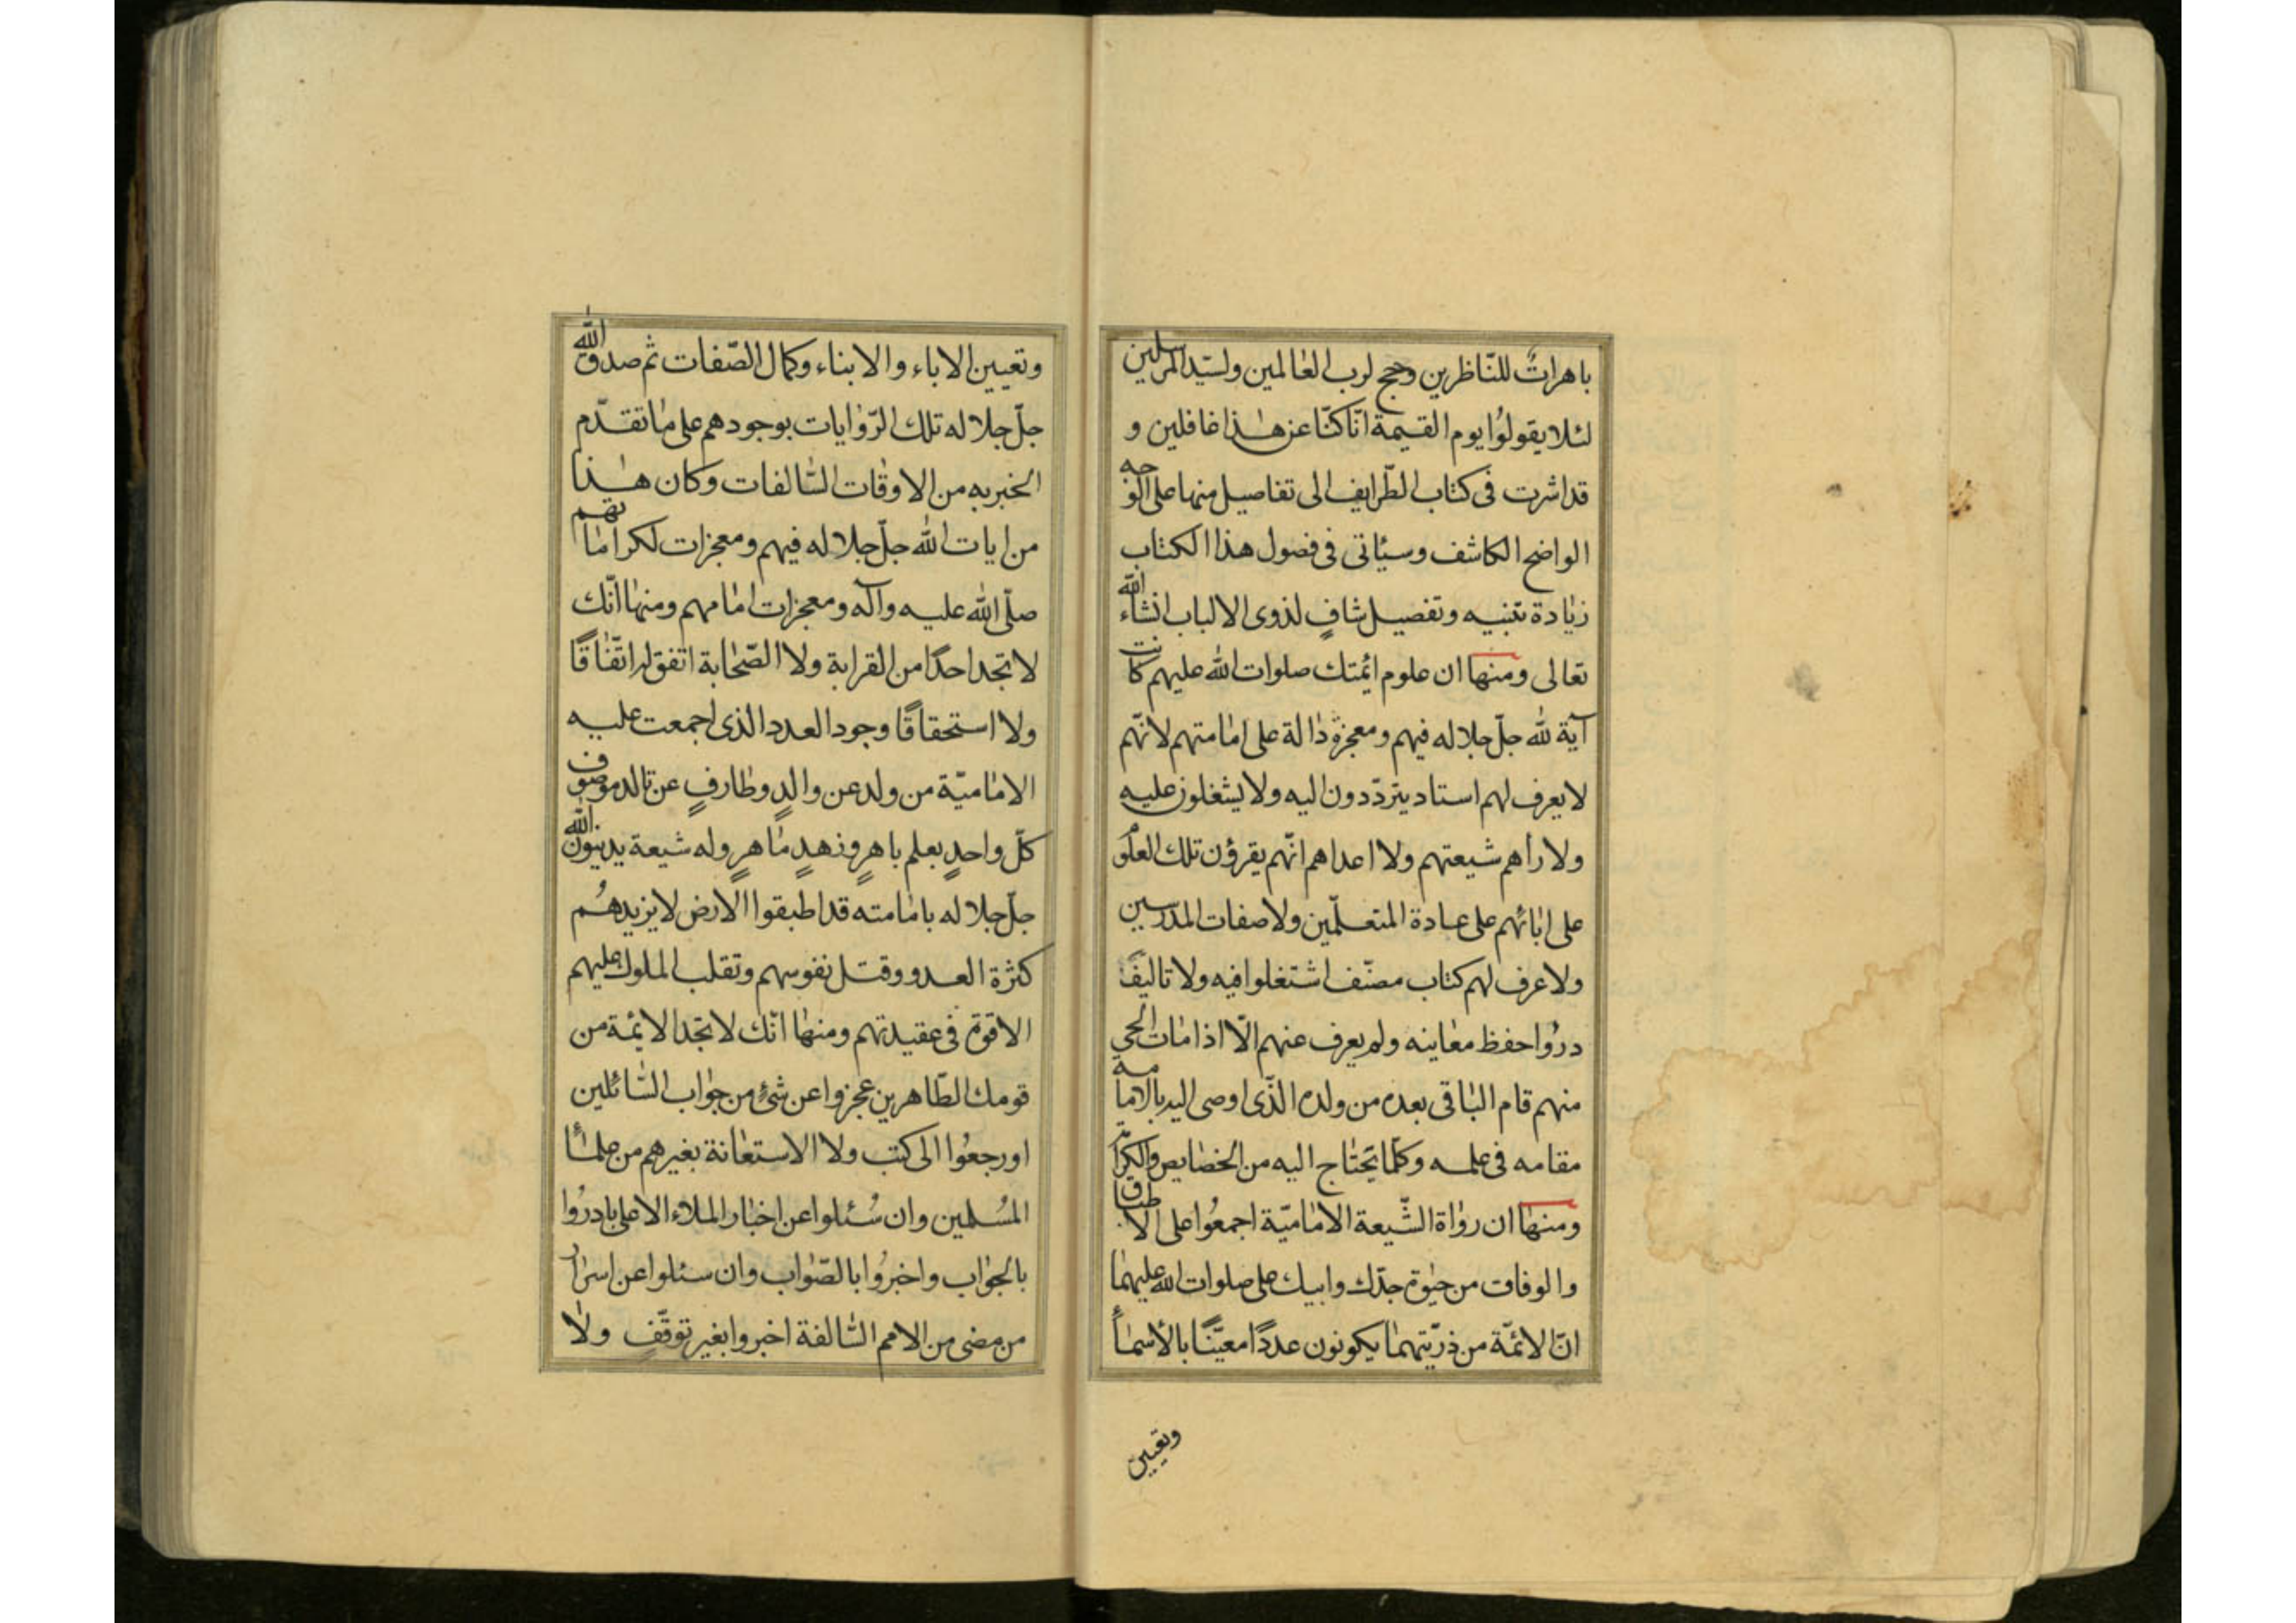 باهراتٌ للنّاظرين وحجج لرب العٰالمين ولسيّد المرسلين
لئلا يقولوُا يوم القيٰمة انّا كنّا عن هٰذا غافلين و
قد اشرت فى كتاب الطّرايف الى تفاصيل منها على الوجه
الواضح الكاشف وسئاتى فى فصول هذا الكتاب
زيٰادة تنبيه وتفصيل شافٍ لذوى الالباب انشاء الله
تعالى ومنهٰا ان علوم ائمتك صلوات اللّٰه عليهم كانت
آية لله جلّ جلاله فيهم ومعجزة دٰالة على امٰامتهم لانّهم
لا يعرف لهم استاد يتردّدون اليه ولا يشغلون عليه
ولا رأهم شيعتهم ولا اعداهم انّهم يقرؤن تلك العلوم
على ابٰائهم على عادة المتعلّمين ولا صفات المدرّسين
ولا عرف لهم كتاب مصنّف اشتغلوا فيه ولا تاليف
درُوا حفظ معٰانيه ولم يعرف عنهم الّا اذا مات الحى
منهم قام البٰاقى بعده من ولده الذّى اوصى اليه بالامامة
مقامه فى علمه وكلّما يحتٰاج اليه من الخصٰايص والكرٰام
ومنهٰا ان روٰاة الشّيعة الامٰاميّة اجمعوُا على الاطباق
والوفاق من حيٰوة جدّك وابيك على صلوات الله عليهمٰا
انّ الائمّة من ذريّتهمٰا يكونون عددًا معيّنًا بالأسمٰاء
وتعيين
وتعيين الاباء والابناء وكمال الصّفات ثم صدق اللّٰه
جلّ جلاله تلك الرّوٰايات بوجودهم على مٰا تقدّم
الخبر به من الاوقٰات السّٰالفات وكان هٰذا
من ايات اللّٰه جلّ جلاله فيهم ومعجزات لكرامٰاتهم
صلّى اللّٰه عليه وآله ومعجزات امٰامهم ومنهٰا انّك
لا تجد احدًا من القرابة ولا الصّحٰابة اتفق له اتّفٰاقًا
ولا استحقاقًا وجود العدد الذى اجمعت عليه
الامٰاميّة من ولد عن والدٍ وطٰارفٍ عن تالد موصوف
كلّ واحدٍ بعلم باهرٍ وزهدٍ مٰاهرٍ وله شيعة يدينون اللّٰه
جلّ جلاله بامٰامته قد اطبقوا الارض لا يزيدهُم
كثرة العدو وقتل نفوسهم وتقلب الملوك عليهم
الا قوة فى عقيدتهم ومنهٰا انّك لا تجد الائمة من
قومك الطّاهرين عجزوا عن شئ من جوٰاب السّٰائلين
او رجعوُا الى كتب ولا الاستعٰانة بغيرهم من علمٰاء
المُسلمين وان سُئلوا عن اخبٰار الملاء الاعلى بادرُوا
بالجوٰاب واخبرُوا بالصّوٰاب وان سئلوا عن اسرٰار
من مضى من الامم السّٰالفة اخبروا بغير توقّفٍ ولٰا